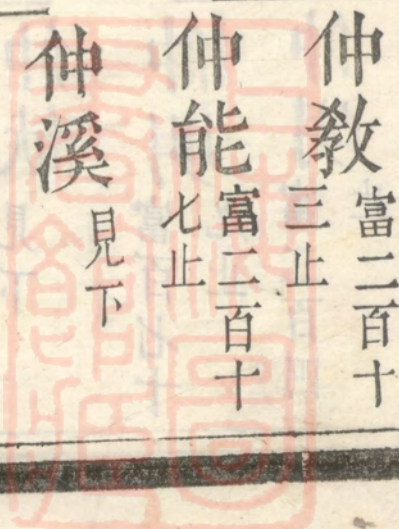 仲教富二百十三止
仲能富二百十七止
仲溪見下